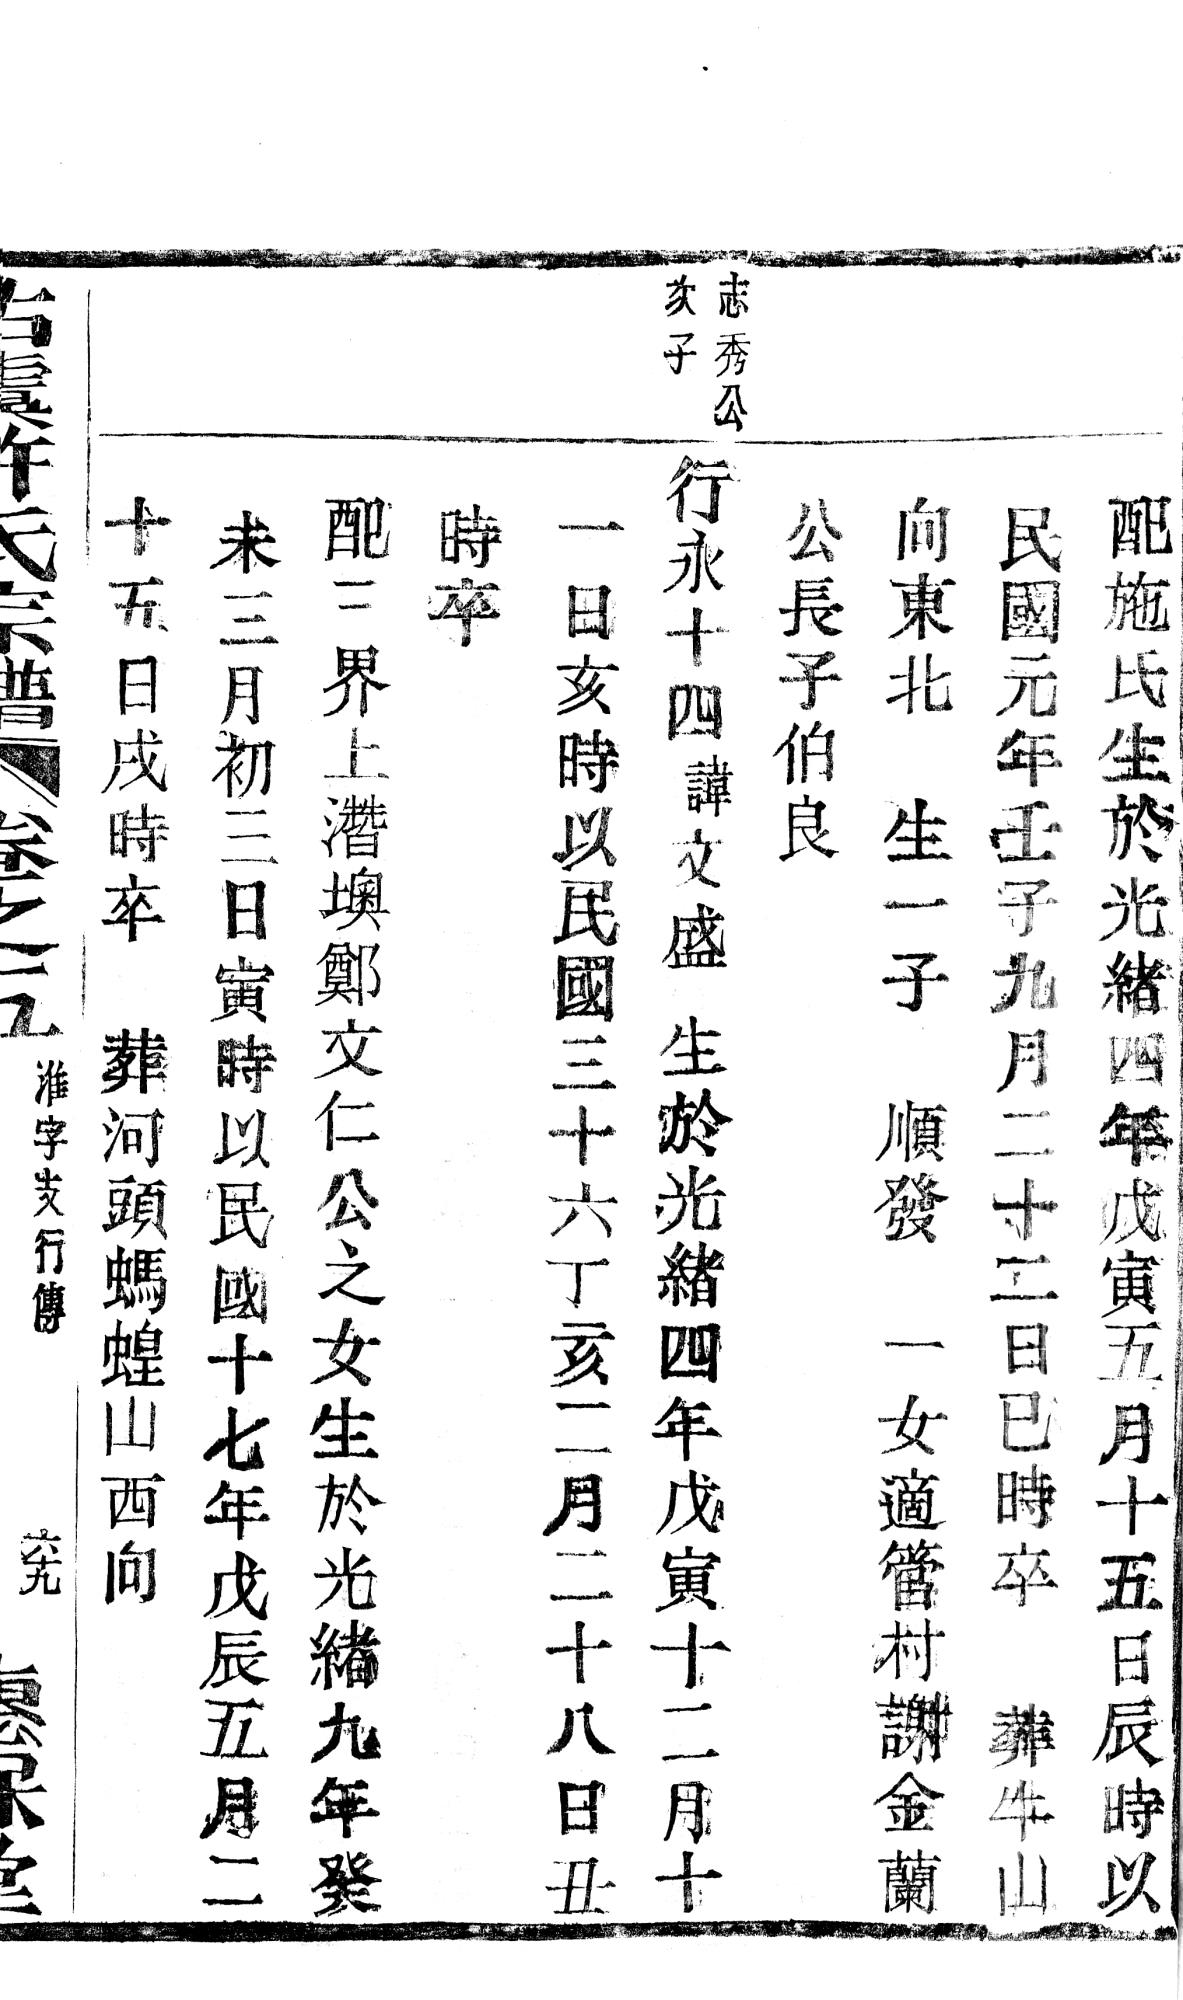 配施氏生於光緒四年戊寅五月十五日辰時以
民國元年壬子九月二十二日巳時卒　葬牛山
向東北　生一子　順發　一女適管村謝金蘭
公長子伯良
志秀公
次子
行永十四諱文盛　生於光緒四年戊寅十二月十
一日亥時以民國三十六丁亥二月二十八日丑
時卒
配三界上潛墺鄭文仁公之女生於光緒九年癸
未三月初三日寅時以民國十七年戊辰五月二
十五日戌時卒　葬河頭螞蝗山西向
古虞許氏宗譜　卷之一九
淮字支行傳
六九
惠保堂